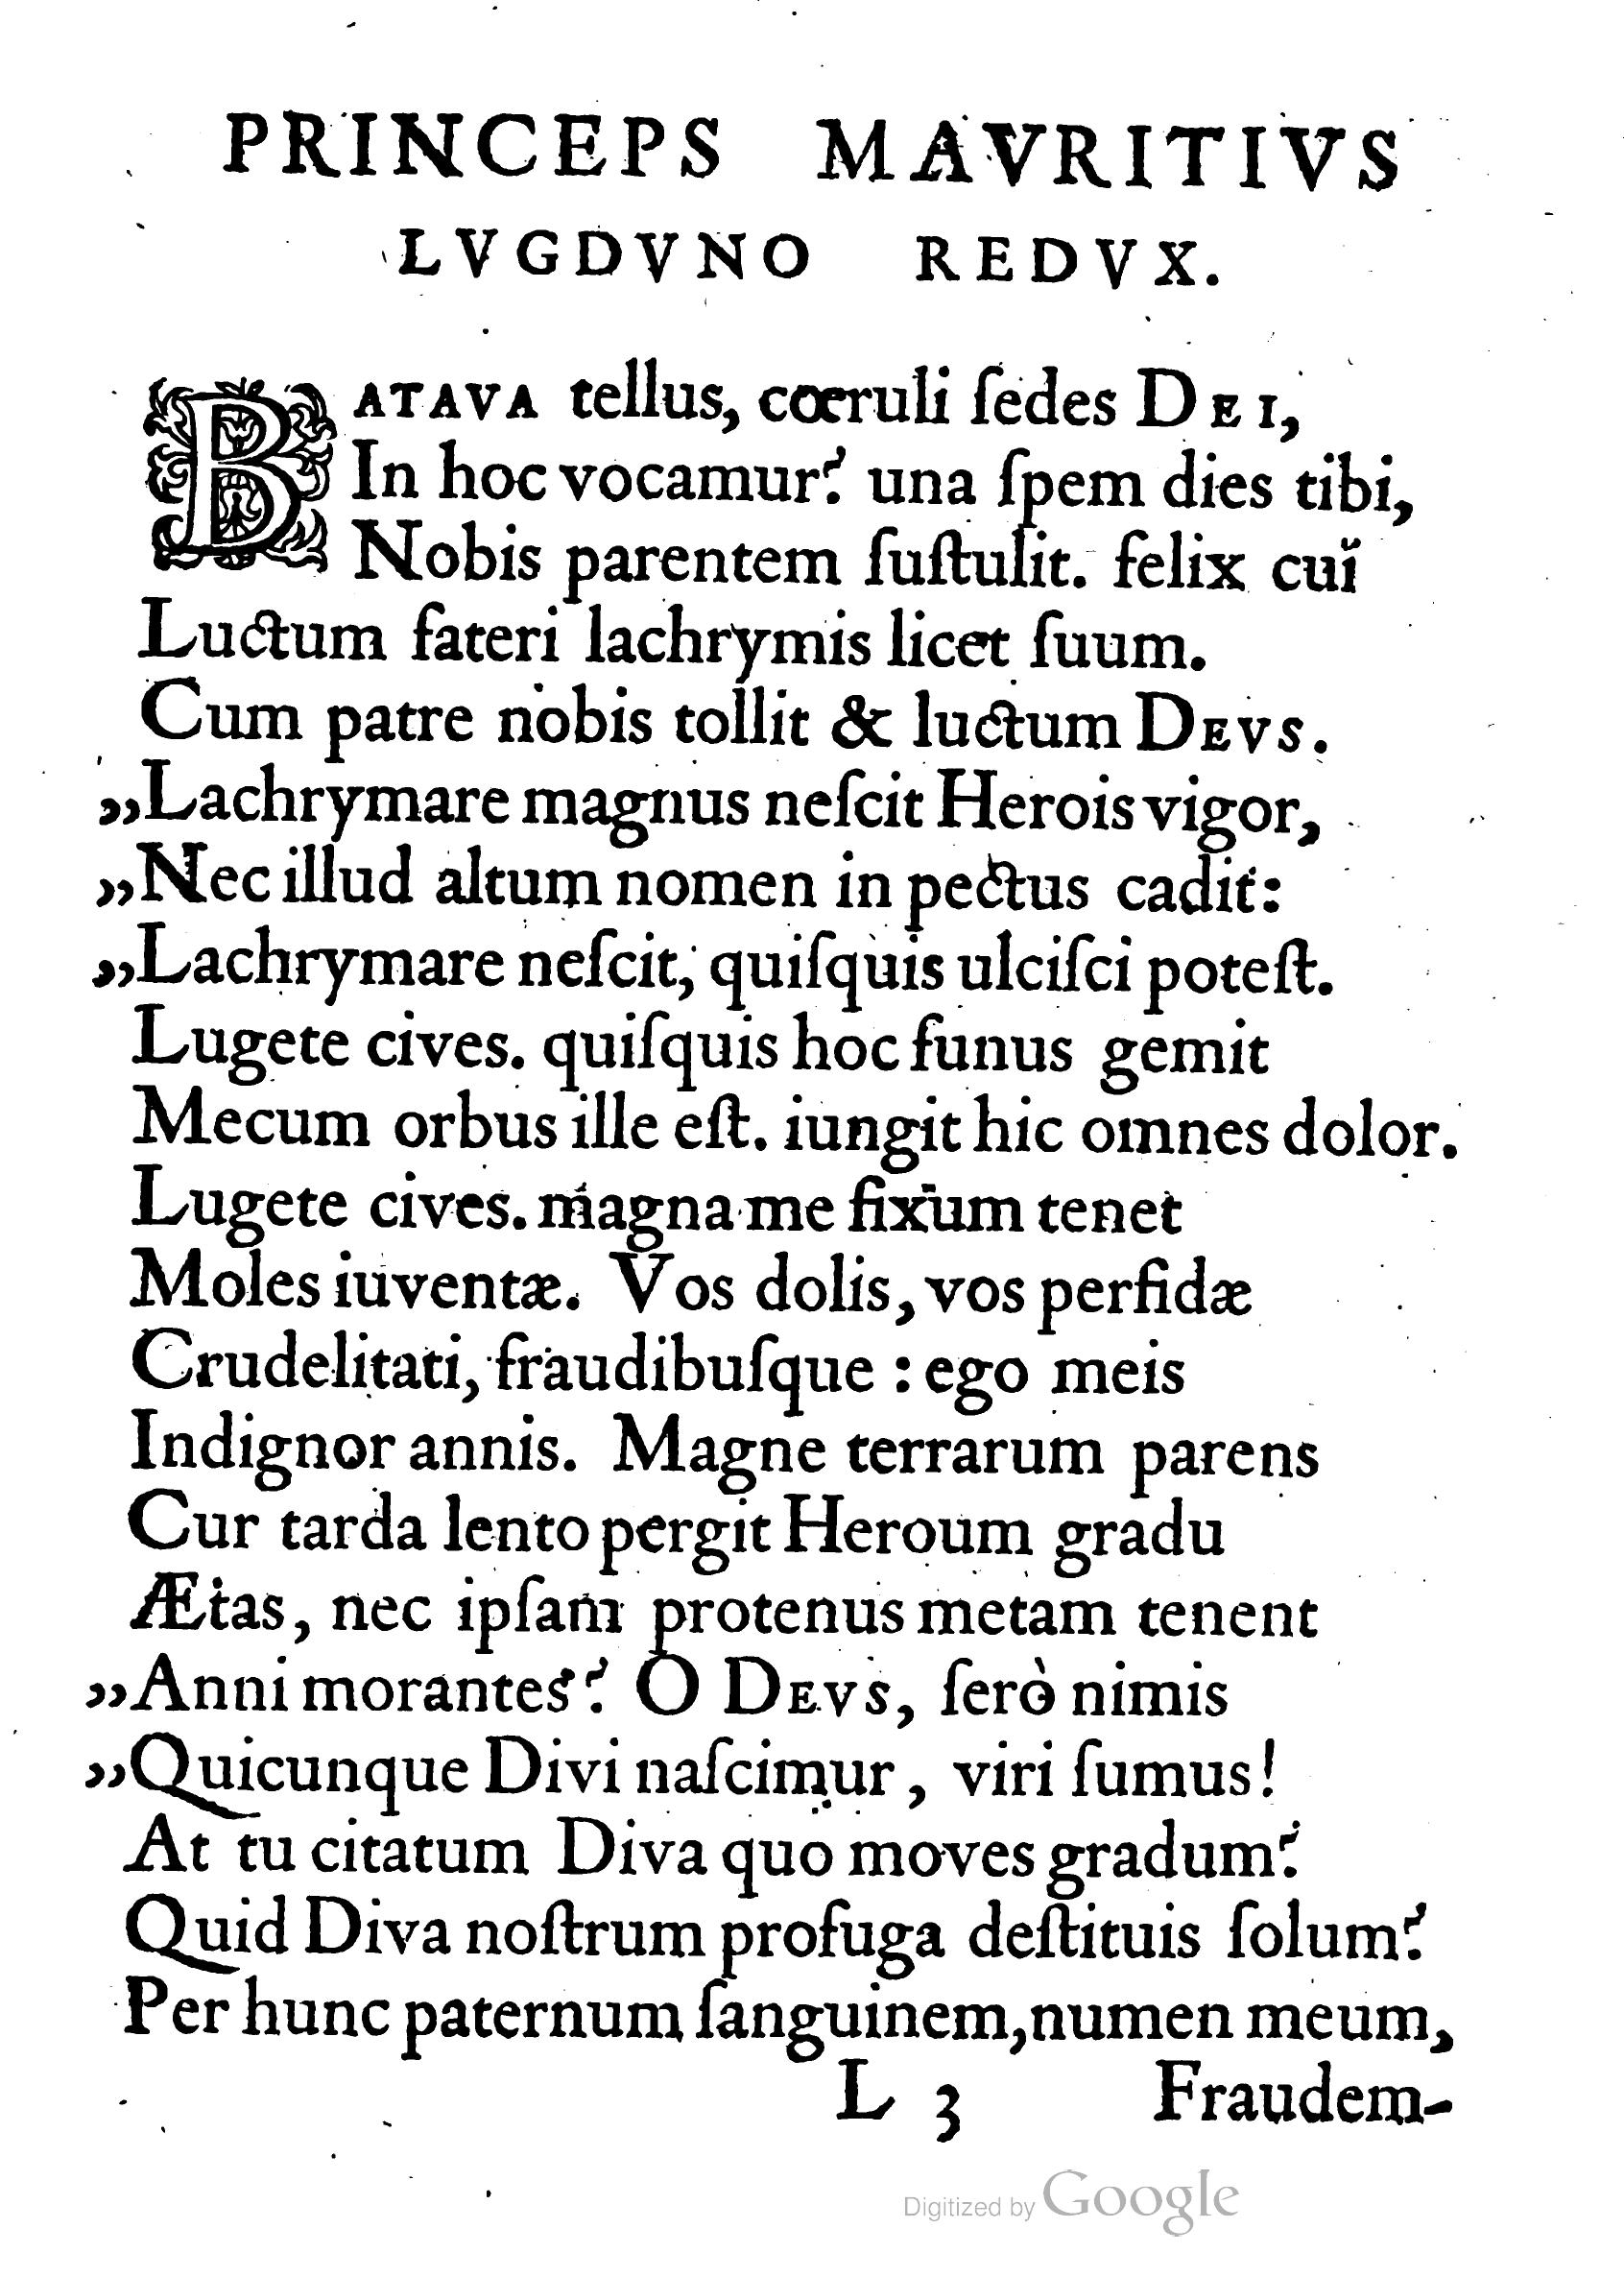 PRINCEPS MAVRITIVS
LVGDVNO REDVX.
BATAVA tellus, cœruli ſedes DEI,
In hoc vocamur? una ſpem dies tibi,
Nobis parentem ſuſtulit. felix cui
Luctum fateri lachrymis licet ſuum.
Cum patre nobis tollit & luctum DEVS.
„Lachrymare magnus neſcit Herois vigor,
„Nec illud altum nomen in pectus cadit:
„Lachrymare neſcit, quiſquis ulciſci poteſt.
Lugete cives. quiſquis hoc funus gemit
Mecum orbus ille eſt. iungit hic omnes dolor.
Lugete cives. magna me fixum tenet
Moles iuventæ. Vos dolis, vos perfidæ
Crudelitati, fraudibuſque : ego meis
Indignor annis. Magne terrarum parens
Cur tarda lento pergit Heroum gradu
Ætas, nec ipſam protenus metam tenent
„Anni morantes? O DEVS, ſerò nimis
„Quicunque Divi naſcimur, viri ſumus!
At tu citatum Diva quo moves gradum?
Quid Diva noſtrum profuga deſtituis ſolum?
Per hunc paternum ſanguinem, numen meum,
L 3 Fraudem-
Digitized by Google